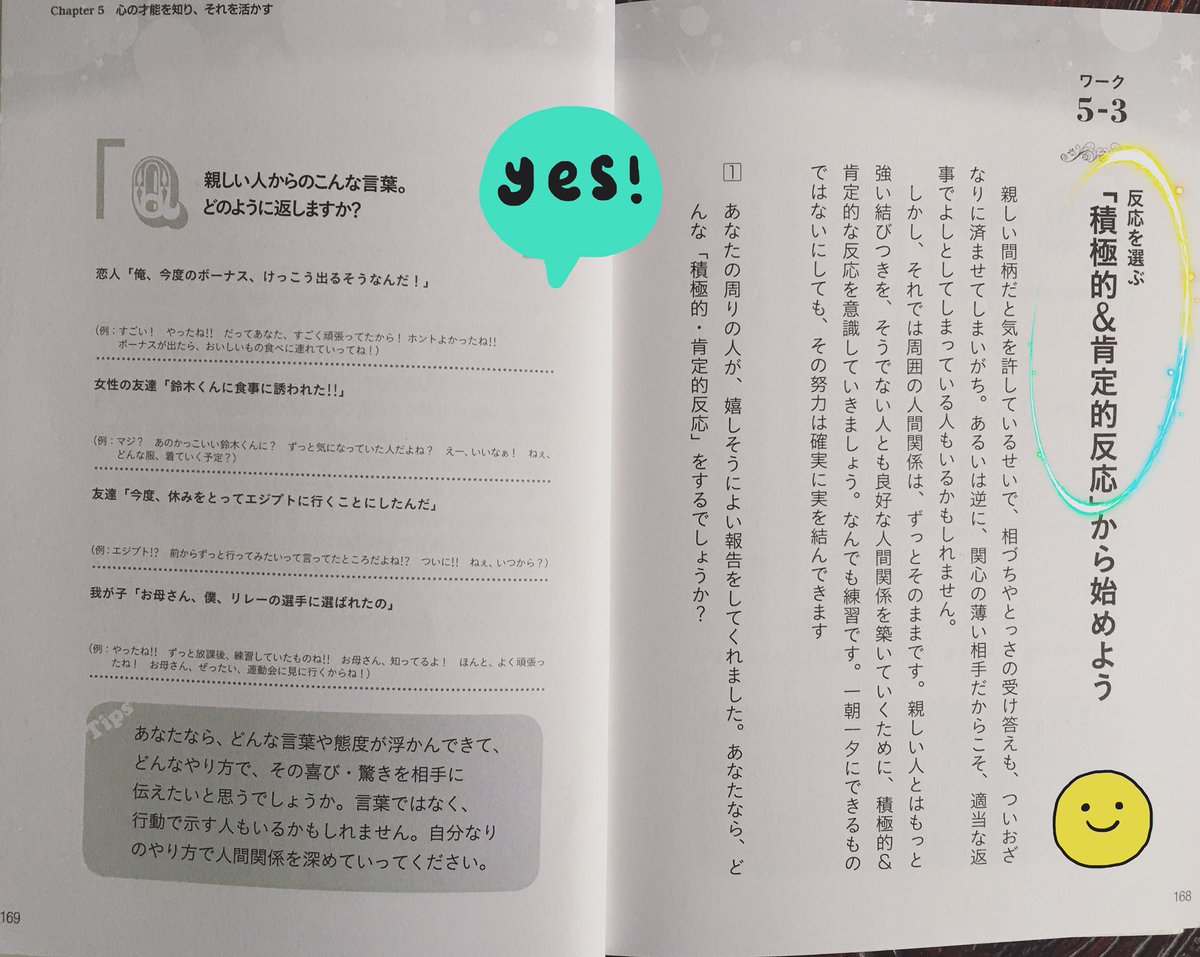 ワーク
5-3
反応を選ぶ
「積極的&肯定的反応」から始めよう
親しい間柄だと気を許しているせいで、相づちやとっさの受け答えも、ついおざ
なりに済ませてしまいがち。あるいは逆に、関心の薄い相手だからこそ、適当な返
事でよしとしてしまっている人もいるかもしれません。
しかし、それでは周囲の人間関係は、ずっとそのままです。親しい人とはもっと
強い結びつきを、そうでない人とも良好な人間関係を築いていくために、積極的&
肯定的な反応を意識していきましょう。なんでも練習です。一朝一夕にできるもの
ではないにしても、その努力は確実に実を結んできます
1 あなたの周りの人が、嬉しそうによい報告をしてくれました。あなたなら、ど
んな「積極的・肯定的反応」をするでしょうか?
168
yes!
Chapter 5 心の才能を知り、それを活かす
「Q
親しい人からのこんな言葉。
どのように返しますか?
恋人「俺、今度のボーナス、けっこう出るそうなんだ!」
(例:すごい! やったね!! だってあなた、すごく頑張ってたから! ホントよかったね!!
ボーナスが出たら、おいしいもの食べに連れていってね!)
女性の友達「鈴木くんに食事に誘われた!!」
(例:マジ? あのかっこいい鈴木くんに? ずっと気になっていた人だよね? えー、いいなぁ! ねぇ、
どんな服、着ていく予定?)
友達「今度、休みをとってエジプトに行くことにしたんだ」
(例:エジプト!? 前からずっと行ってみたいって言ってたところだよね!? ついに!! ねぇ、いつから?)
我が子「お母さん、僕、リレーの選手に選ばれたの」
(例:やったね!! ずっと放課後、練習していたものね!! お母さん、知ってるよ! ほんと、よく頑張っ
たね! お母さん、ぜったい、運動会に見に行くからね!)
Tips
あなたなら、どんな言葉や態度が浮かんできて、
どんなやり方で、その喜び・驚きを相手に
伝えたいと思うでしょうか。言葉ではなく、
行動で示す人もいるかもしれません。自分なり
のやり方で人間関係を深めていってください。
169